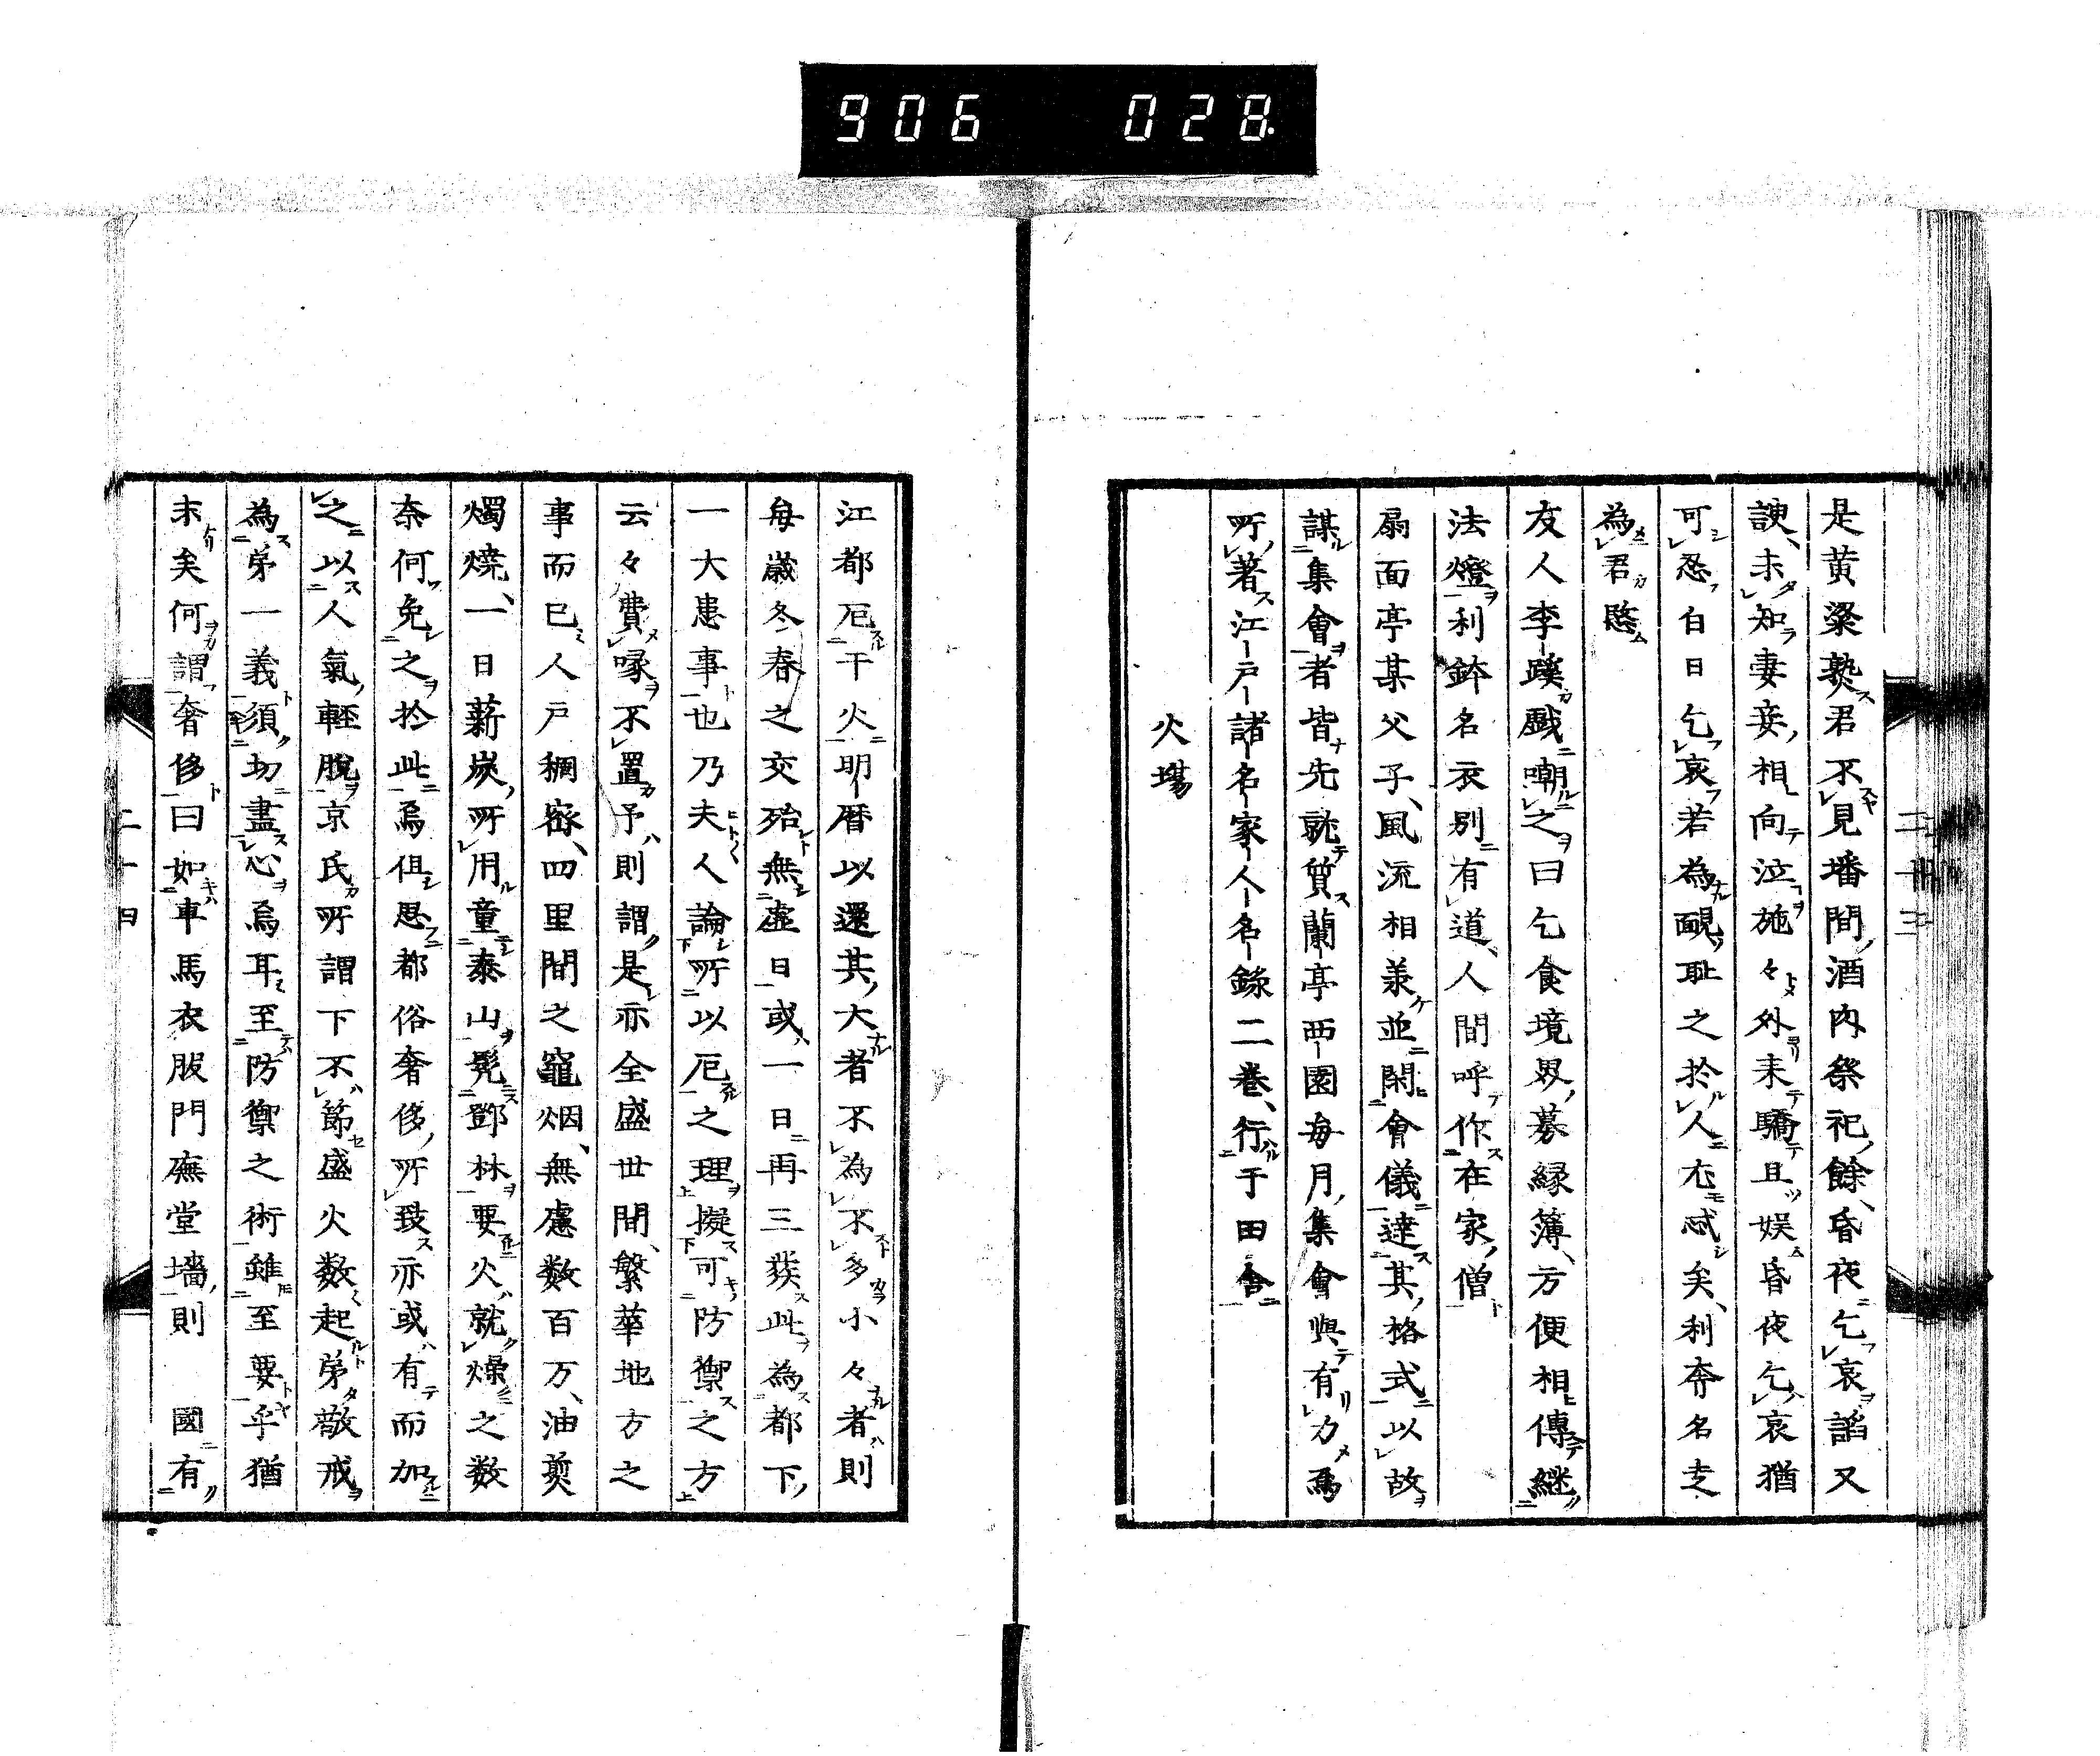 906 028
是黄粱熟君不見墦間酒肉祭祀餘昏夜乞哀諂又
諛未知妻妾相向泣施々外来驕且娯昏夜乞哀猶
可忍白日乞哀若為靦耻之於人尤忒矣利奔名走
為君愍
友人李蹊戯嘲之曰乞食境界募縁簿方便相傳継
法燈利鉾名衣別有道人間呼作在家僧
扇面亭某父子風流相兼並閑會儀達其格式以故
謀集會者皆先就質蘭亭西園毎月集會與有力焉
所著江戸諸名家人名錄二巻行于田舍
火場
江都厄于火明暦以還其大者不為不多小々者則
毎歳冬春之交殆無虚日或一日再三發此為都下
一大患事也乃夫人論所以厄之理擬可防禦之方
云々費喙不置予則謂是亦全盛世間繁華地方之
事而已人戸稠密四里間之竈烟無慮数百万油煎
燭焼一日薪炭所用童泰山髡鄧林要火就燥之数
奈何免之於此焉但思都俗奢侈所致亦或有而加
之以人氣輕脫京氏所謂下不節盛火数起弟敬戒
為弟一義須切盡心焉耳至防禦之術雖至要乎猶
末矣何謂奢侈曰如車馬衣服門廡堂墻則 國有
二十四